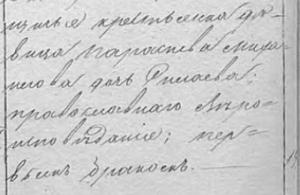 щинье крестьенска дѣ-
вица Параскева Миха-
илова дочь Рилаева;
православнаго вѣро-
исповѣданіе; пер-
вымъ бракомъ.